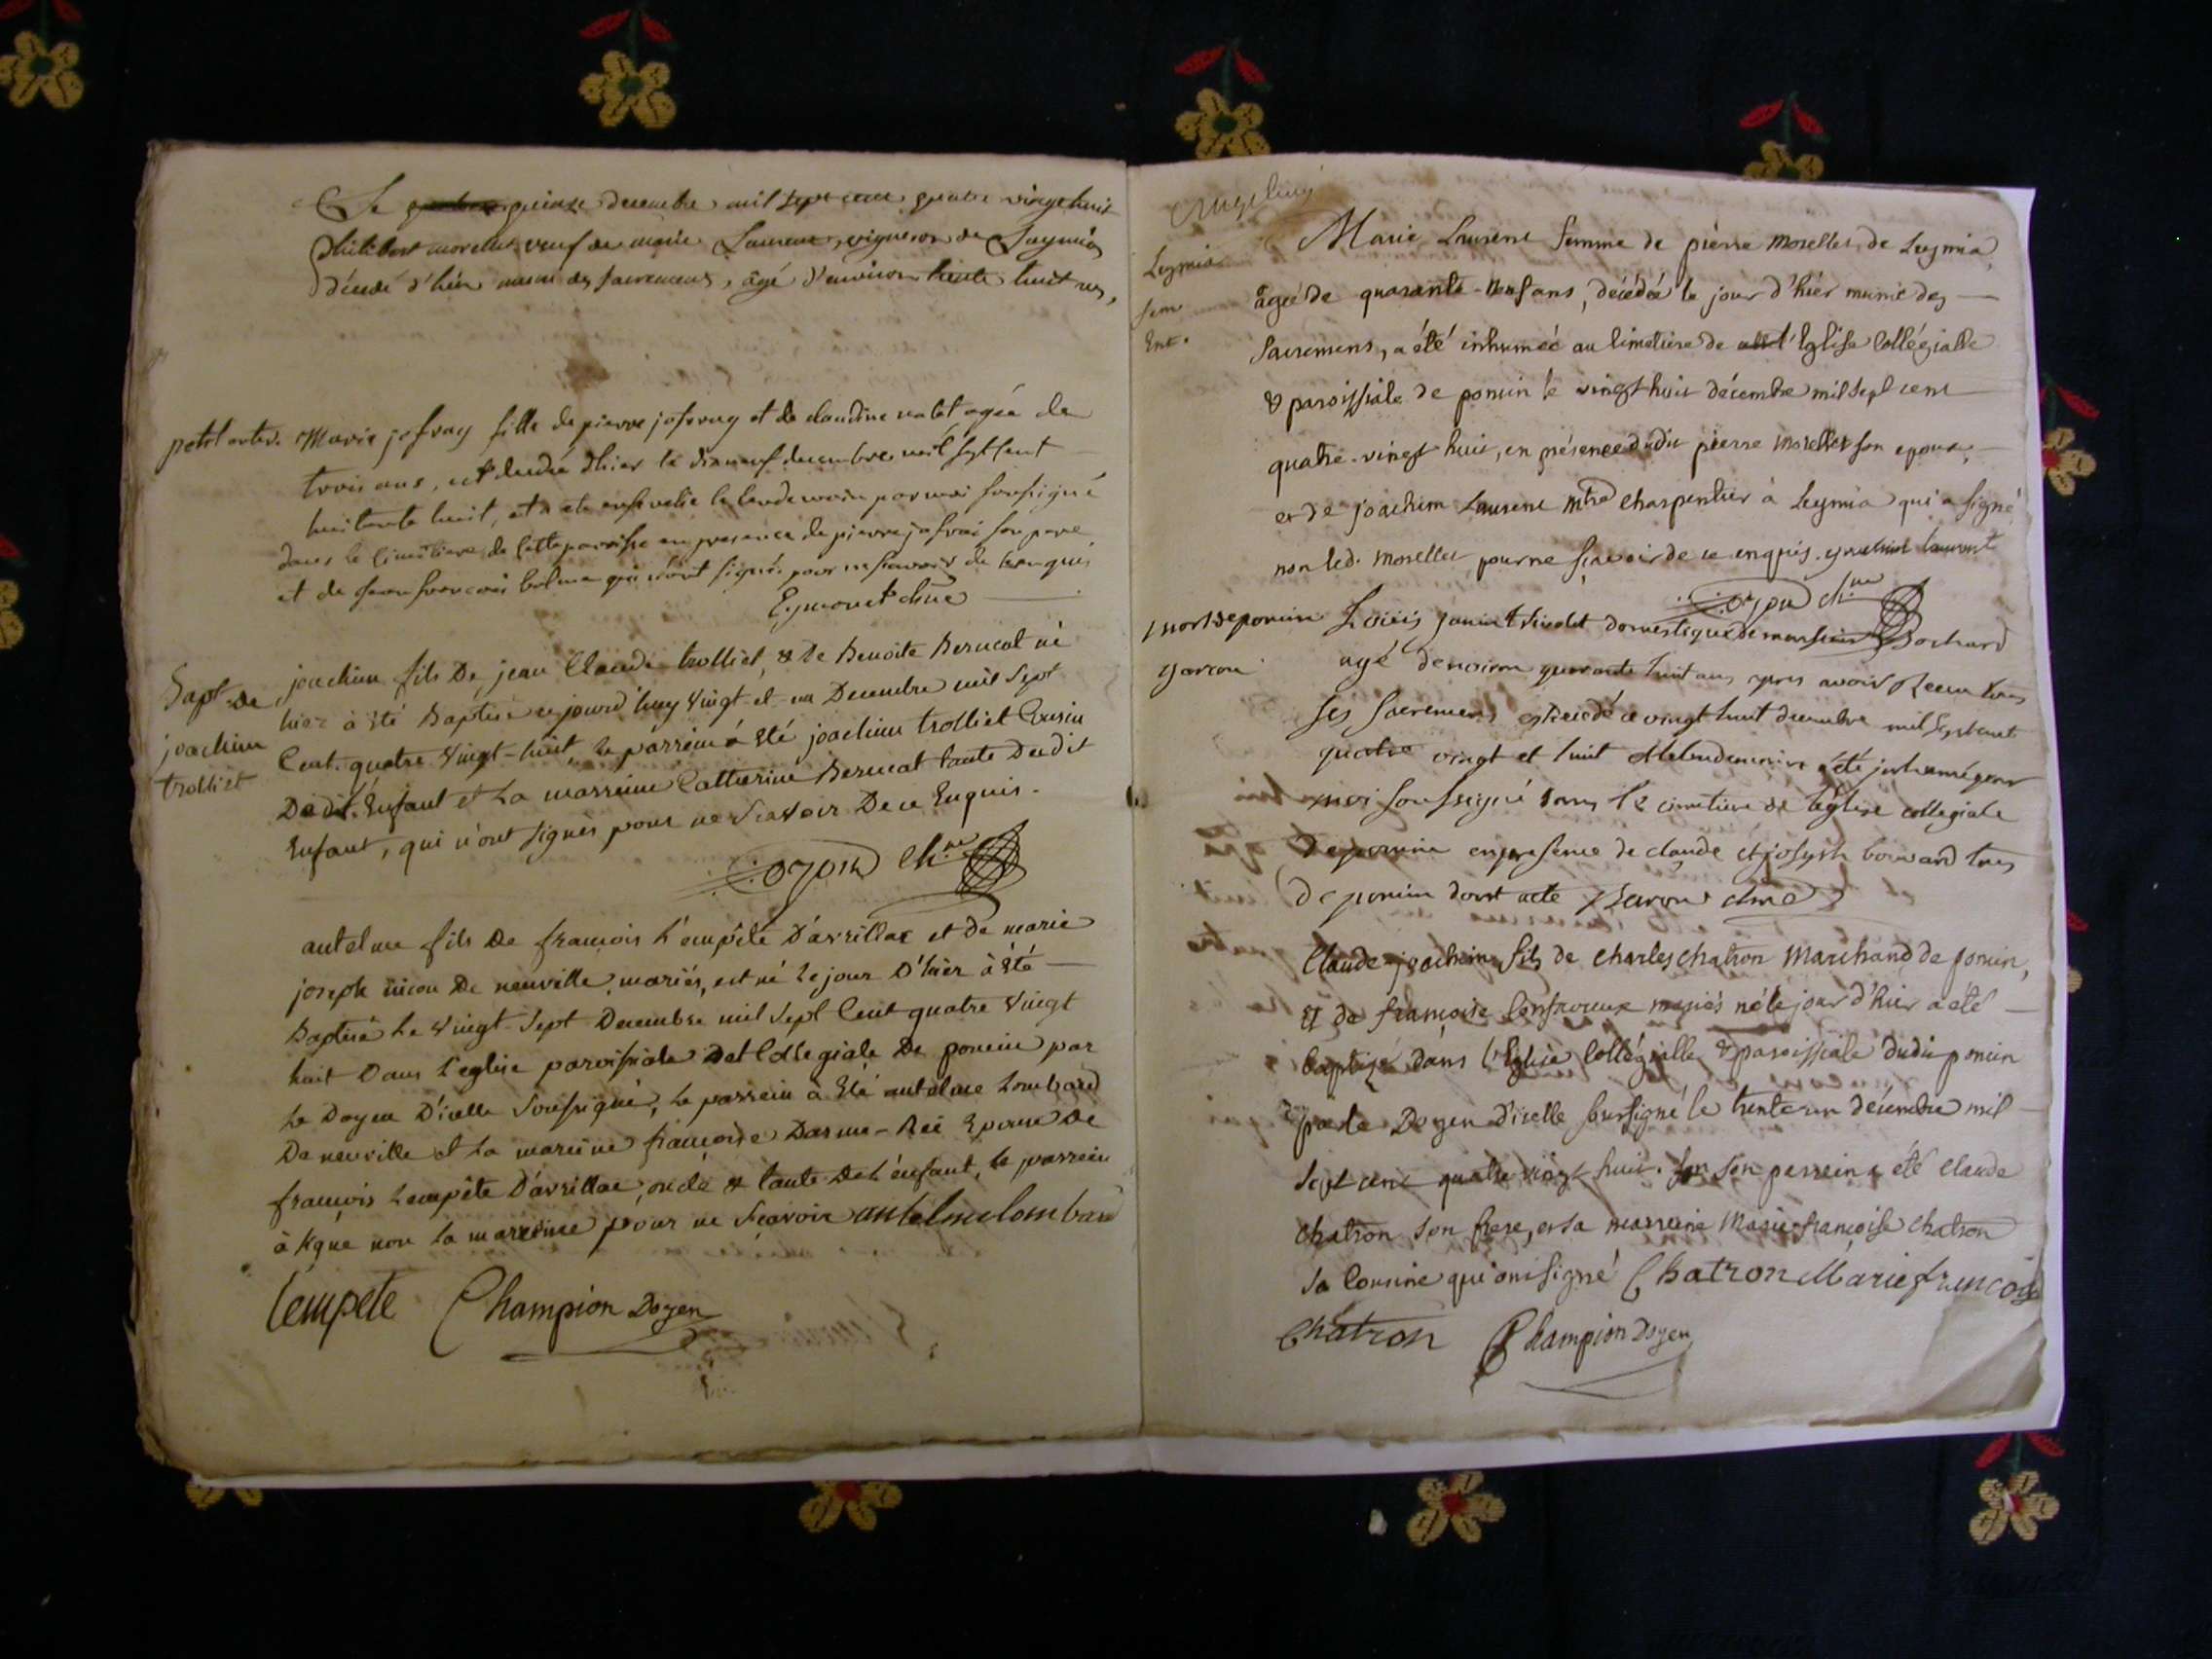 Le quinze decembre mil sept cent quatre vingt huit
philibert morellet veuf de marie Laurent, vigneron de Leymia
décédé d'hier muni des sacremens, âgé d'environ trente huit ans,
petit enter. Marie jofray fille de pierre jofray et de claudine valet agée de
trois ans, est decedée d'hier le dixneuf decembre mil sept cent
huitante huit, et a eté ensevelie le lendemain par moi soussigné
dans le cimetiere de cette paroisse en presence de pierre jofrai son pere
et de jean francois qui n'ont signé pour ne scavoir de ce enquis
Eymonet chne
Bapt. De
joachim
trolliet
joachim fils De jean Claude trolliet, & De Benoite Berucat né
hier à été Baptisé ce jourd'huy vingt-et-un Decembre mil Sept
Cent. quatre Vingt-huit, le parrein à Eté joachim trolliet Cousin
Dudit. Enfant et La marreine Catherine Berucat tante Dudit
Enfant, qui n'ont signés pour ne Scavoir De ce Enquis.
ozon Ch.ne
antelme fils De francois L'empête D'avrillac et de marie
joseph nicou De neuville mariés, est né le jour D'hier à Eté
Baptisé Le Vingt-Sept Decembre mil Sept Cent quatre Vingt
huit Dans L'eglise paroissiale et Collegiale De poncin par
Le Doyen D'icelle Soussigné, Le parrein à Eté antelme Lombard
De neuville et La marreine francoise Epouse De
francois Lempête D'avrillac, oncle & tante De L'enfant, Le parrein
à signé non La marreine pour ne Scavoir antelme lombard
Lempete Champion Doyen
Leymia
fem
Ent.
Marie Laurent femme de pierre Morellet, de Leymia,
âgée de quarante-neuf ans, décédée le jour d'hiér munie des
Sacremens, a été inhumée au Cimetiere de l'Eglise Collégialle
& paroissiale de poncin le vingt huit décembre mil sept cent
quatre-vingt huit, en présence dudit pierre Morellet son epoux,
et de joachim Laurent mtre charpentier à Leymia qui a signé
non led. Morellet pour ne scavoir de ce enquis. joachim laurent
ozon ch.ne
mort de poncin
garcon
Louis domestique de monsieur Bochard
agé denviron quarante huit ans apres avoir Receu tous
ses sacremens est decedé ce vingt huit decembre mil sept cent
quatre vingt et huit et le lendemain a été inhumé par
moi soussigné dans le cimetiere de l'eglise collegiale
de poncin en presence de claude et joseph bouvard tous
de poncin dont acte chne
Claude-joachim fils de Charles Chatron Marchand de poncin,
Et de francoise mariés né le jour d'hier a été
baptisé dans l'Eglise Collégialle & paroissiale dudit poncin
par le Doyen d'icelle soussigné le trente un décembre mil
Sept cent quatre vingt huit. son parrein a été Claude
Chatron son frere, et sa marreine Marie-francoise Chatron
Sa Cousine qui ont signé Chatron Marie francoise
Chatron Champion Doyen